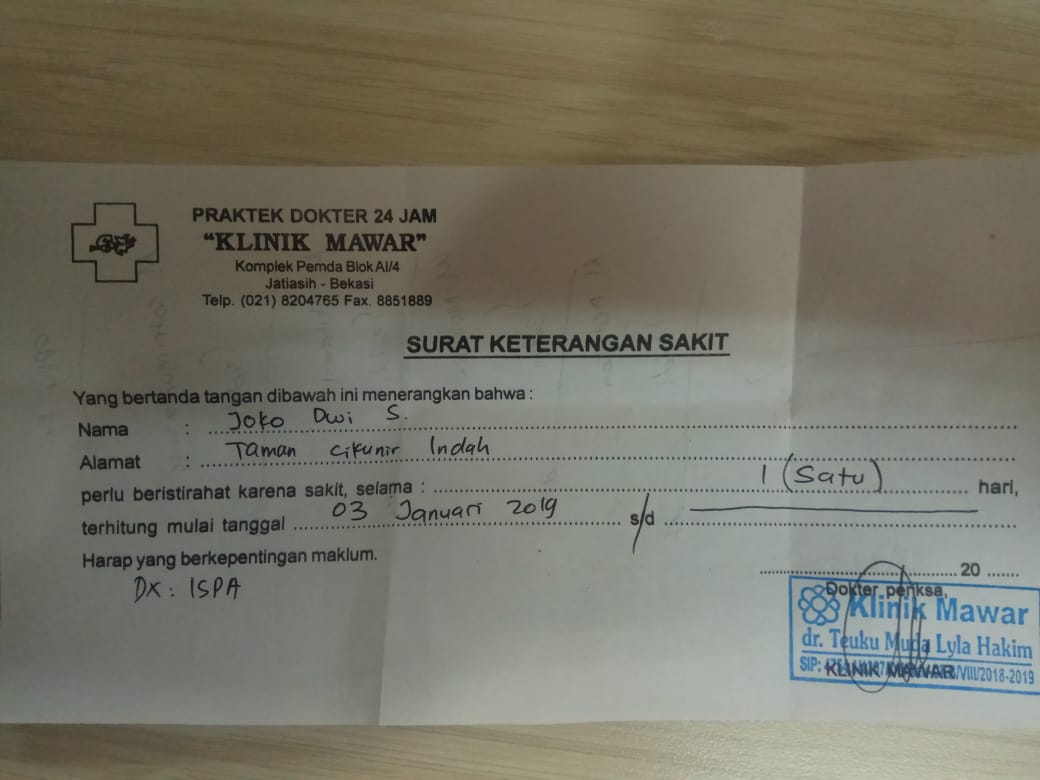 PRAKTEK DOKTER 24 JAM
"KLINIK MAWAR"
Komplek Pemda Blok AI/4
Jatiasih - Bekasi
Telp. (021) 8204765 Fax. 8851889
SURAT KETERANGAN SAKIT
Yang bertanda tangan dibawah ini menerangkan bahwa :
Nama : Joko Dwi S.
Alamat : Taman Cikunir Indah
perlu beristirahat karena sakit, selama : 1 (Satu) hari,
terhitung mulai tanggal 03 Januari 2019 s/d
Harap yang berkepentingan maklum.
DX : ISPA
20
Dokter periksa,
Klinik Mawar
dr. Teuku Muda Lyla Hakim
SIP: /VIII/2018-2019
KLINIK MAWAR